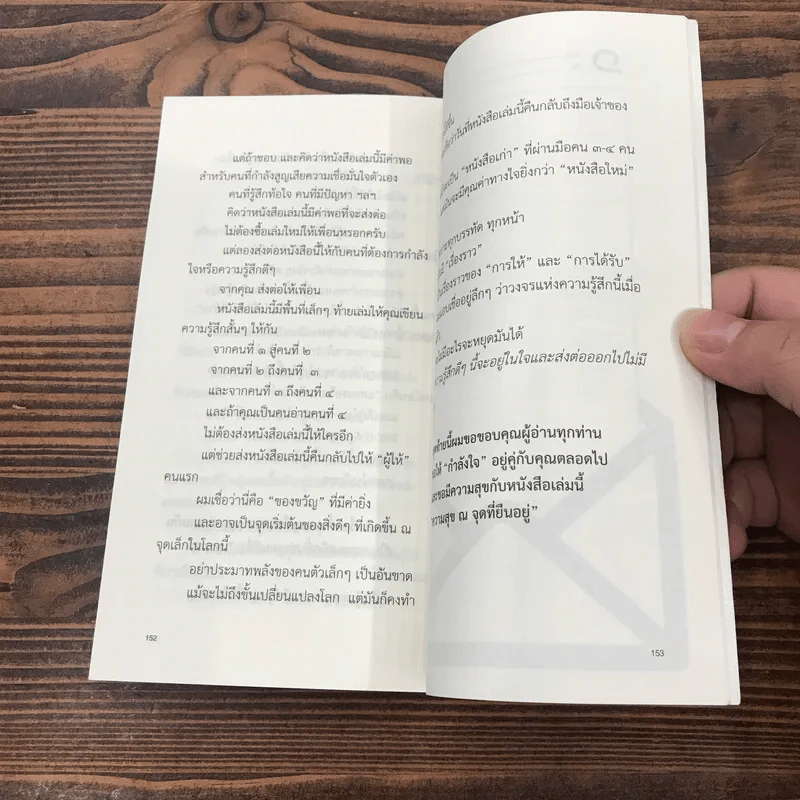 แต่ถ้าชอบ และคิดว่าหนังสือเล่มนี้มีค่าพอ
สำหรับคนที่กำลังสูญเสียความเชื่อมั่นใจตัวเอง
คนที่รู้สึกท้อใจ คนที่มีปัญหา ฯลฯ
คิดว่าหนังสือเล่มนี้มีค่าพอที่จะส่งต่อ
ไม่ต้องซื้อเล่มใหม่ให้เพื่อนหรอกครับ
แต่ลองส่งต่อหนังสือนี้ให้กับคนที่ต้องการกำลัง
ใจหรือความรู้สึกดีๆ
จากคุณ ส่งต่อให้เพื่อน
หนังสือเล่มนี้มีพื้นที่เล็กๆ ท้ายเล่มให้คุณเขียน
ความรู้สึกสั้นๆ ให้กัน
จากคนที่ ๑ สู่คนที่ ๒
จากคนที่ ๒ ถึงคนที่ ๓
และจากคนที่ ๓ ถึงคนที่ ๔
และถ้าคุณเป็นคนอ่านคนที่ ๔
ไม่ต้องส่งหนังสือเล่มนี้ให้ใครอีก
แต่ช่วยส่งหนังสือเล่มนี้คืนกลับไปให้ “ผู้ให้”
คนแรก
ผมเชื่อว่านี่คือ “ของขวัญ” ที่มีค่ายิ่ง
และอาจเป็นจุดเริ่มต้นของสิ่งดีๆ ที่เกิดขึ้น ณ
จุดเล็กในโลกนี้
อย่าประมาทพลังของคนตัวเล็กๆ เป็นอันขาด
แม้จะไม่ถึงขั้นเปลี่ยนแปลงโลก แต่มันก็คงทำ
152
ว่าวันที่หนังสือเล่มนี้คืนกลับถึงมือเจ้าของ
เป็น “หนังสือเก่า” ที่ผ่านมือคน ๓-๔ คน
เป็นจะมีคุณค่าทางใจยิ่งกว่า “หนังสือใหม่”
ทุกบรรทัด ทุกหน้า
“เรื่องราว”
เรื่องราวของ “การให้” และ “การได้รับ”
เชื่ออยู่ลึกๆ ว่าวงจรแห่งความรู้สึกนี้เมื่อ
มีอะไรจะหยุดมันได้
ความรู้สึกดีๆ นี้จะอยู่ในใจและส่งต่อออกไปไม่มี
ท้ายนี้ผมขอขอบคุณผู้อ่านทุกท่าน
ให้ “กำลังใจ” อยู่คู่กับคุณตลอดไป
ขอมีความสุขกับหนังสือเล่มนี้
ความสุข ณ จุดที่ยืนอยู่”
153